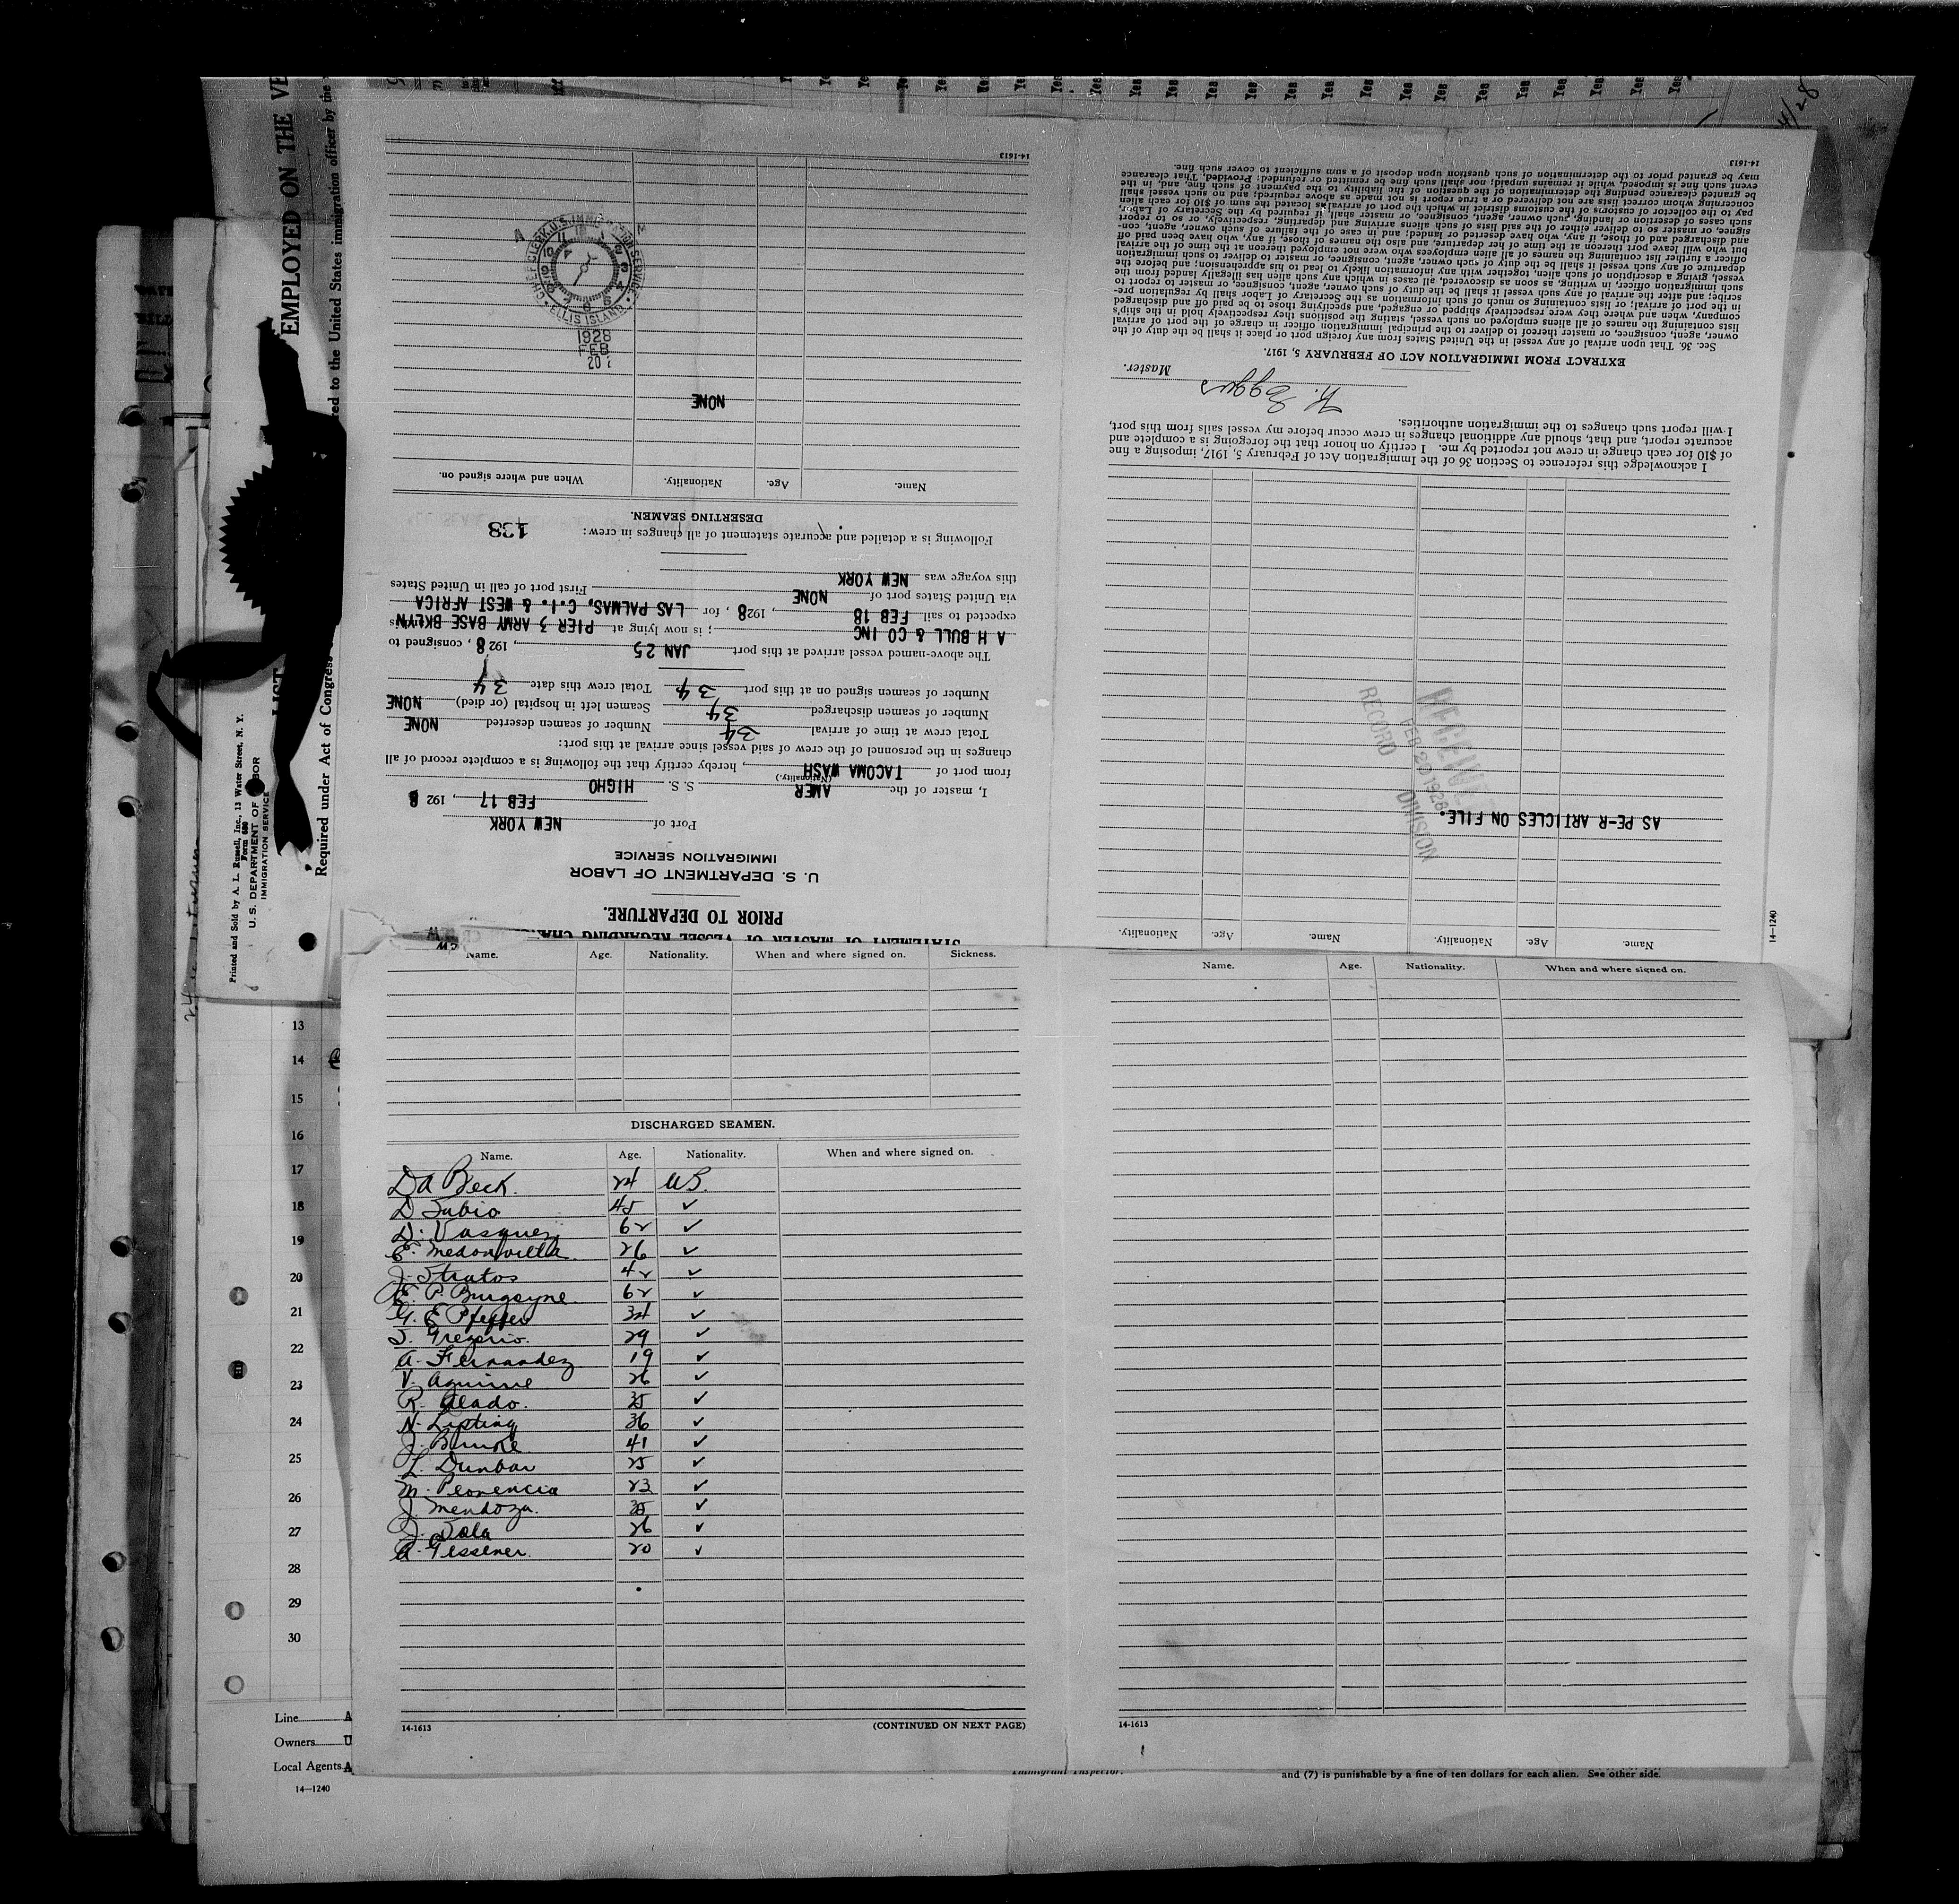 STATEMENT OF MASTER OF VESSEL REGARDING
PRIOR TO DEPARTURE.
U. S. DEPARTMENT OF LABOR
IMMIGRATION SERVICE
Port of NEW YORK FEB 17, 1928
I, master of the AMER S. S. HIGHO
(Nationality.)
from port of TACOMA WASH, hereby certify that the following is a complete record of all
changes in the personnel of the crew of said vessel since arrival at this port:
Total crew at time of arrival 34 Number of seamen deserted NONE
Number of seamen discharged 34 Seamen left in hospital (or died) NONE
Number of seamen signed on at this port 34 Total crew this date 34
The above-named vessel arrived at this port JAN 25, 1928, consigned to
A H BULL & CO INC; is now lying at PIER 3 ARMY BASE BKLYN
expected to sail FEB 18, 1928, for LAS PALMAS, C.I. & WEST AFRICA
via United States port of NONE First port of call in United States
this voyage was NEW YORK
Following is a detailed and accurate statement of all changes in crew: 138
DESERTING SEAMEN.
Name. Age. Nationality. When and where signed on.
NONE
CHIEF CLERK U.S. IMMIGRATION SERVICE
ELLIS ISLAND
1928
FEB
20
14-1613
Name. Age. Nationality. Name. Age. Nationality.
AS PE-R ARTICLES ON FILE.
RECEIVED
FEB 20 1928
RECORD DIVISION
I acknowledge this reference to Section 36 of the Immigration Act of February 5, 1917, imposing a fine
of $10 for each change in crew not reported by me. I certify on honor that the foregoing is a complete and
accurate report, and that, should any additional changes in crew occur before my vessel sails from this port,
I will report such changes to the immigration authorities.
Master.
EXTRACT FROM IMMIGRATION ACT OF FEBRUARY 5, 1917.
Sec. 36. That upon arrival of any vessel in the United States from any foreign port or place it shall be the duty of the
owner, agent, consignee, or master thereof to deliver to the principal immigration officer in charge of the port of arrival
lists containing the names of all aliens employed on such vessel, stating the positions they respectively hold in the ship's
company, when and where they were respectively shipped or engaged, and specifying those to be paid off and discharged
in the port of arrival; or lists containing so much of such information as the Secretary of Labor shall by regulation pre-
scribe; and after the arrival of any such vessel it shall be the duty of such owner, agent, consignee, or master to report to
such immigration officer, in writing, as soon as discovered, all cases in which any such alien has illegally landed from the
vessel, giving a description of such alien, together with any information likely to lead to his apprehension; and before the
departure of any such vessel it shall be the duty of such owner, agent, consignee, or master to deliver to such immigration
officer a further list containing the names of all alien employees who were not employed thereon at the time of the arrival
but who will leave port thereon at the time of her departure, and also the names of those, if any, who have been paid off
and discharged and of those, if any, who have deserted or landed; and in case of the failure of such owner, agent, con-
signee, or master so to deliver either of the said lists of such aliens arriving and departing, respectively, or so to report
such cases of desertion or landing, such owner, agent, consignee, or master shall, if required by the Secretary of Labor,
pay to the collector of customs of the customs district in which the port of arrival is located the sum of $10 for each alien
concerning whom correct lists are not delivered or a true report is not made as above required; and no such vessel shall
be granted clearance pending the determination of the question of the liability to the payment of such fine, and, in the
event such fine is imposed, while it remains unpaid; nor shall such fine be remitted or refunded: Provided, That clearance
may be granted prior to the determination of such question upon deposit of a sum sufficient to cover such fine.
14-1613
Name. Age. Nationality. When and where signed on. Sickness.
DISCHARGED SEAMEN.
Name. Age. Nationality. When and where signed on.
D A Beck. 24 US.
D Subio 45 ✓
D. Vasquez 62 ✓
E. 26 ✓
J. Stratos 42 ✓
E. P. Burgoyne 62 ✓
G. E Pfeffer 34 ✓
S. Gregorio. 29 ✓
A. Fernandez 19 ✓
V. Aguirre 26 ✓
R. Alado. 35 ✓
N. Lipting 36 ✓
J. 41 ✓
L. Dunbar 25 ✓
M. 23 ✓
J. Mendoza. 35 ✓
J. Sola 26 ✓
A. Gessener. 20 ✓
14-1613 (CONTINUED ON NEXT PAGE)
Name. Age. Nationality. When and where signed on.
14-1613
EMPLOYED ON THE VE
LIST
Required under Act of Congress
ed to the United States immigration officer by the
Printed and Sold by A. L. Russell, Inc., 13 Water Street, N. Y.
Form 680
U. S. DEPARTMENT OF LABOR
IMMIGRATION SERVICE
Yes Yes Yes Yes Yes Yes Yes Yes Yes Yes Yes Yes Yes Yes Yes Yes Yes Yes Yes Yes Yes Yes Yes
14—1240
13
14
15
16
17
18
19
20
21
22
23
24
25
26
27
28
29
30
Line A
Owners U
Local Agents A
14—1240
Immigrant Inspector.
and (7) is punishable by a fine of ten dollars for each alien. See other side.